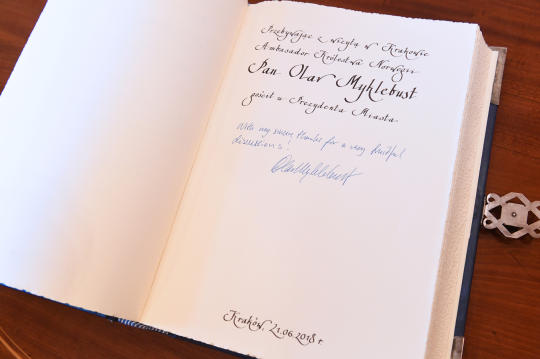 Przebywając z wizytą w Krakowie
Ambasador Królestwa Norwegii
Pan Olav Myklebust
gościł u Prezydenta Miasta.
With my sincere thanks for a very fruitful
discussions!
Olav Myklebust
Kraków, 21.06.2018 r.